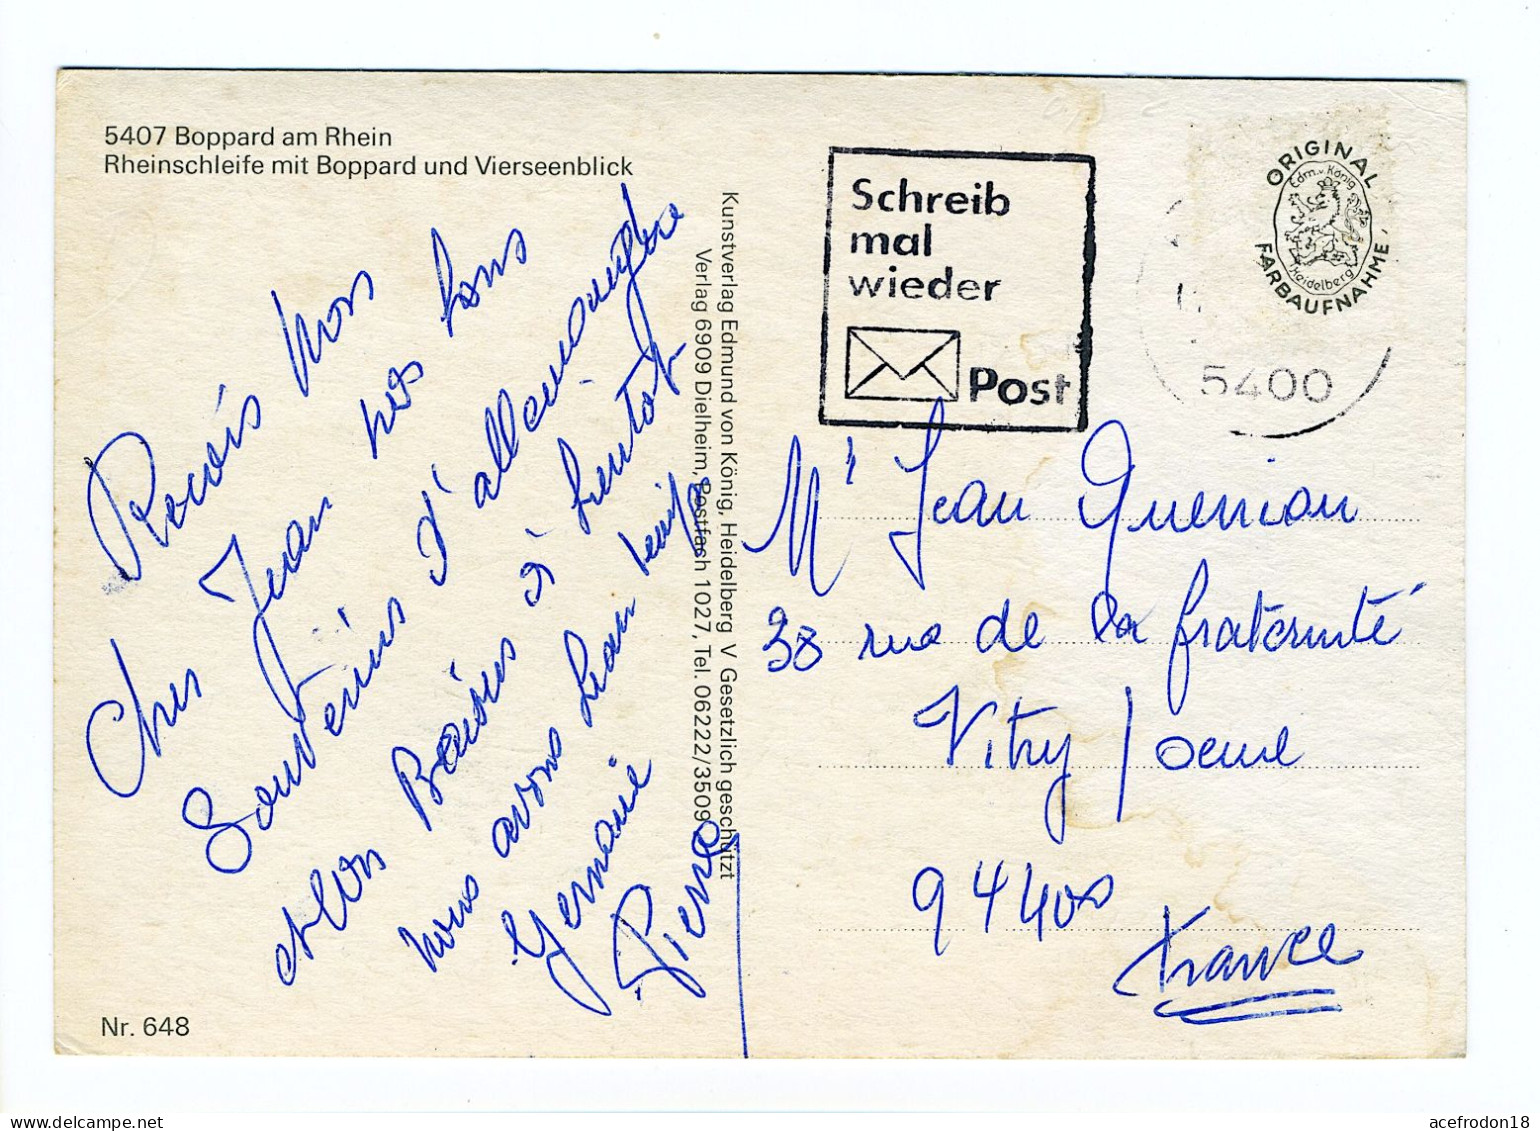 5407 Boppard am Rhein
Rheinschleife mit Boppard und Vierseenblick
Recois mon
Cher Jean nos bons
Souvenirs d'allemangne
et bons Baisers à bientot
nous avons beau
Germaine
Pierre
Nr. 648
Kunstverlag Edmund von König, Heidelberg V Gesetzlich geschützt
Verlag 6909 Dielheim, Postfach 1027, Tel. 06222/3509
Schreib
mal
wieder
Post
ORIGINAL
Edm. v. König
Heidelberg
FARBAUFNAHME
5400
Mr Jean Guerriau
38 rue de la fraternité
Vitry / seine
94400
France
acefrodon18